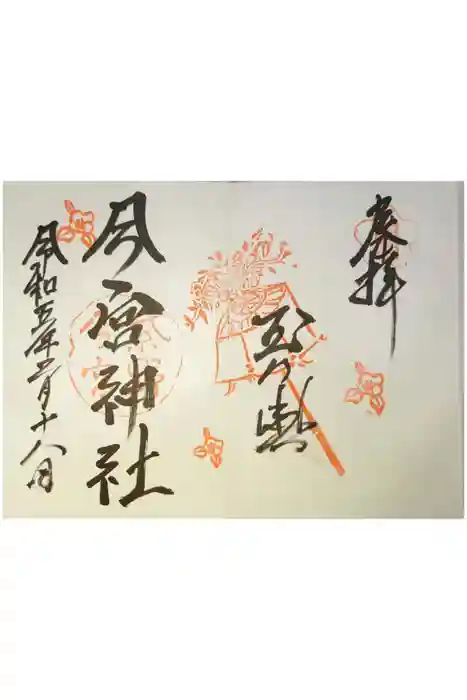 奉拝
玉の輿
今宮神社
令和五年二月十八日